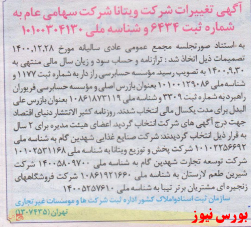 آگهی تغییرات شرکت ویتانا شرکت سهامی عام به
شماره ثبت ۶۴۳۴ و شناسه ملی ۱۰۱۰۰۳۰۴۱۳۰
به استناد صورتجلسه مجمع عمومی عادی سالیانه مورخ ۱۴۰۰.۱۲.۲۸
تصمیمات ذیل اتخاذ شد : ترازنامه و حساب سود و زیان سال مالی منتهی به
۱۴۰۰.۹.۳۰ به تصویب رسید. مؤسسه حسابرسی راز دار به شماره ثبت ۱۱۷۷ و
شناسه ملی ۱۰۱۰۰۱۲۹۰۸۶ بعنوان بازرس اصلی و مؤسسه حسابرسی فریوران
راهبرد به شماره ثبت ۳۳۰۹ و شناسه ملی ۱۰۸۶۱۸۷۳۱۱۹ بعنوان بازرس علی
البدل برای مدت یکسال مالی انتخاب شدند. روزنامه کثیر الانتشار دنیای اقتصاد
جهت درج آگهی های شرکت انتخاب گردید اعضای هیئت مدیره برای ۲ سال
به قرار ذیل انتخاب گردیدند: شرکت صنایع غذایی شهدین گام به شناسه ملی
شرکت پخش و توزیع ویتانا به شناسه ملی
شرکت توسعه تجارت شهدین گام به شناسه ملی ۱۴۰۰۵۸۰۹۷۰۰ شرکت
شیرین طعم لارستان به شناسه ملی شرکت فروشگاههای
زنجیره ای مشتریان برتر تیبا به شناسه ملی ۱۴۰۰۵۲۵۷۶۱۰
سازمان ثبت اسناد واملاک کشور اداره ثبت شرکت ها و موسسات غیرتجاری
تهران (۱۳۰۷۴۳۵)
بورس نیوز